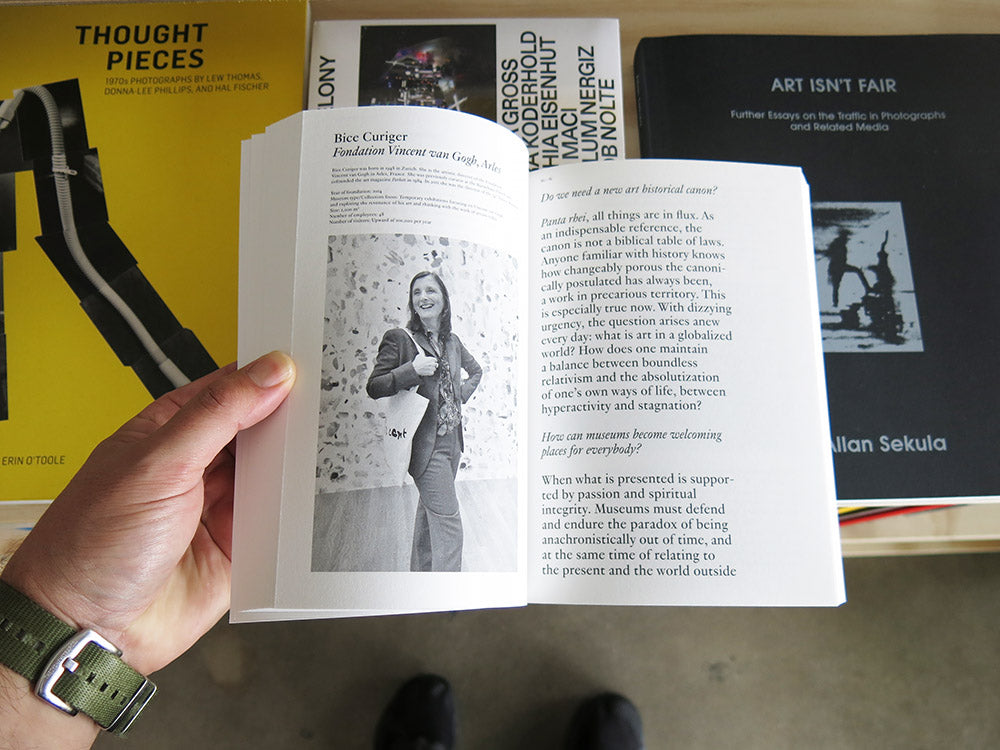 THOUGHT
PIECES
1970s PHOTOGRAPHS BY LEW THOMAS,
DONNA-LEE PHILLIPS, AND HAL FISCHER
ERIN O'TOOLE
GROSS
KODERHOLD
HIA EISENHUT
MACI
LUM NERGIZ
OB NOLTE
ART ISN'T FAIR
Further Essays on the Traffic in Photographs
and Related Media
Allan Sekula
Bice Curiger
Fondation Vincent van Gogh, Arles
Bice Curiger was born in 1948 in Zurich. She is the artistic director of the
Vincent van Gogh in Arles, France. She was previously curator at the
cofounded the art magazine Parkett in 1984. In 2011 she was the director of the
Year of foundation: 2014
Museum type/Collection focus: Temporary exhibitions
and exploring the resonance of his art and thinking with the work of
Size: 2,000 m²
Number of employees: 48
Number of visitors: Upward of 100,000 per year
Do we need a new art historical canon?
Panta rhei, all things are in flux. As
an indispensable reference, the
canon is not a biblical table of laws.
Anyone familiar with history knows
how changeably porous the canoni-
cally postulated has always been,
a work in precarious territory. This
is especially true now. With dizzying
urgency, the question arises anew
every day: what is art in a globalized
world? How does one maintain
a balance between boundless
relativism and the absolutization
of one's own ways of life, between
hyperactivity and stagnation?
How can museums become welcoming
places for everybody?
When what is presented is suppor-
ted by passion and spiritual
integrity. Museums must defend
and endure the paradox of being
anachronistically out of time, and
at the same time of relating to
the present and the world outside